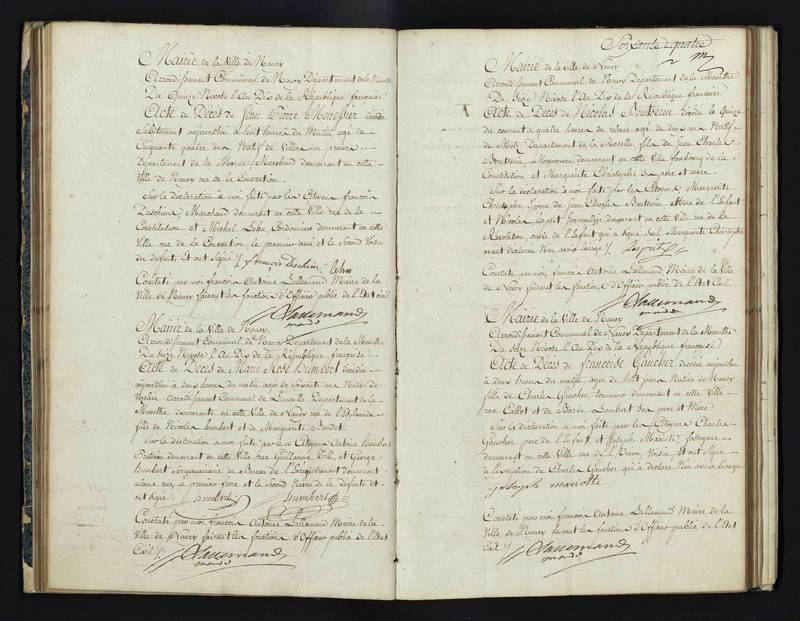 Mairie de la Ville de Nancy
Arrondissement Communal de Nancy Département de la Meurthe
Du Quinze Nivose l'An Dix de la République française
Acte de Décès de Jean Pierre décédé
subitement aujourd'hui à huit heures du Matin, age de
Cinquante quatre ans Natif de
Département de la Marne, Marchand demeurant en cette
Ville de Nancy rue de la Convention.
Sur la déclaration à moi faite par les Citoyens françois
Deschien, Marchand demeurant en cette Ville rue de la
Constitution, et Michel Lebu Cordonnier demeurant en cette
Ville rue de la Convention, le premier ami et le Second Voisin
du défunt, Et ont signé ./. françois
Constaté par moi françois Antoine Lallemand Maire de la
Ville de Nancy faisant les fonctions d'Officier public de l'Etat civil
Lallemand
Mairie de la Ville de Nancy.
Arrondissement Communal de Nancy Département de la Meurthe
Du Seize Nivose l'An Dix de la République française
Acte de Décès de Marie Rose Humbert décédée
aujourd'hui à deux heures du matin age de Soixante ans Native de
Arrondissement Communal de Lunéville Département de la
Meurthe, demeurante en cette Ville de Nancy rue de
fille de Nicolas humbert et de Marguerite
Sur la déclaration à moi faite par les Citoyens Antoine Humbert
demeurant en cette Ville rue Guillaume Tell, et George
Humbert Surnuméraire au Bureau de l'Enregistrement demeurant
même rue, le premier frere et le Second Neveu de la défunte et
ont signé ./. humbert humbert
Constaté par moi françois Antoine Lallemand Maire de la
Ville de Nancy faisant les fonctions d'Officier public de l'Etat
Civil ./. Lallemand
Soixante quatre
Mairie de la ville de Nancy
Arrondissement Communal de Nancy Département de la Meurthe
Du Seize Nivose l'An Dix de la République françoise
Acte de Décès de Nicolas décédé le Quinze
du courant à quatre heures de relevée age de deux ans Natif
de Metz Département de la Moselle, fils de Jean Charles
Manœuvre demeurant en cette Ville faubourg de la
Constitution et Marguerite Christophe ses pere et mere.
Sur la déclaration à moi faite par les Citoyens Marguerite
Christophe, Epouse de Jean Charles Mere de l'enfant
et Nicolas demeurant en cette Ville rue de la
Révolution, oncle de l'enfant qui a signé Seul, Marguerite Christophe
ayant déclaré N'en avoir l'usage ./.
Constaté par moi, françois Antoine Lallemand Maire de la Ville
de Nancy faisant les fonctions d'Officier public de l'Etat Civil.
Lallemand
Mairie de la Ville de Nancy
Arrondissement Communal de Nancy Département de la Meurthe
Du Seize Nivose l'An Dix de la République françoise
Acte de Décès de françoise Gaucher, décédée aujourd'hui
à deux heures du matin, age de huit jours Native de Nancy
fille de Charles Gaucher, tourneur demeurant en cette Ville
rue Callot et de Barbe Lambert ses pere et Mere.
Sur la déclaration à moi faite par les Citoyens Charles
Gaucher pere de l'enfant, et Joseph Mariote,
demeurant en cette Ville rue du Voisin Et ont Signé
à l'exception de Charles Gaucher qui a déclaré N'en avoir l'usage
joseph mariotte
Constaté par moi françois Antoine Lallemand, Maire de la
Ville de Nancy faisant les fonctions d'Officier public de l'Etat
Civil ./. Lallemand